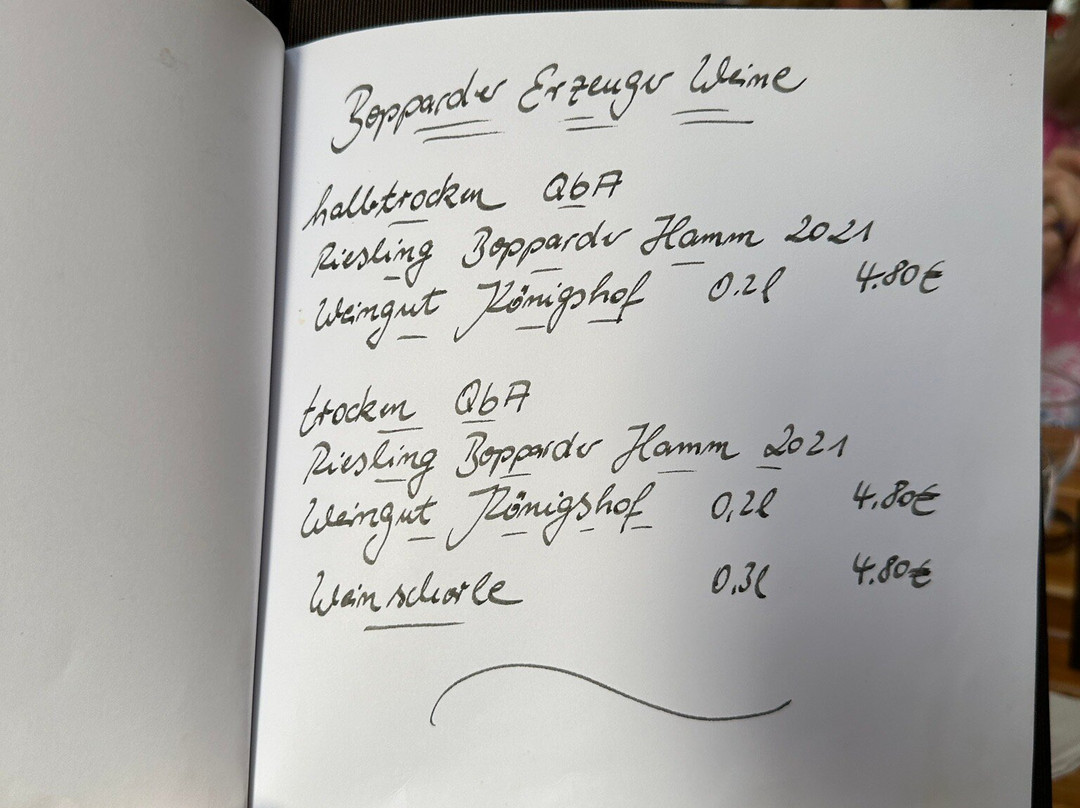 Bopparder Erzeuger Weine
halbtrocken QbA
Riesling Bopparder Hamm 2021
Weingut Königshof 0.2l 4.80€
trocken QbA
Riesling Bopparder Hamm 2021
Weingut Königshof 0,2l 4.80€
Weinschorle 0,3l 4.80€